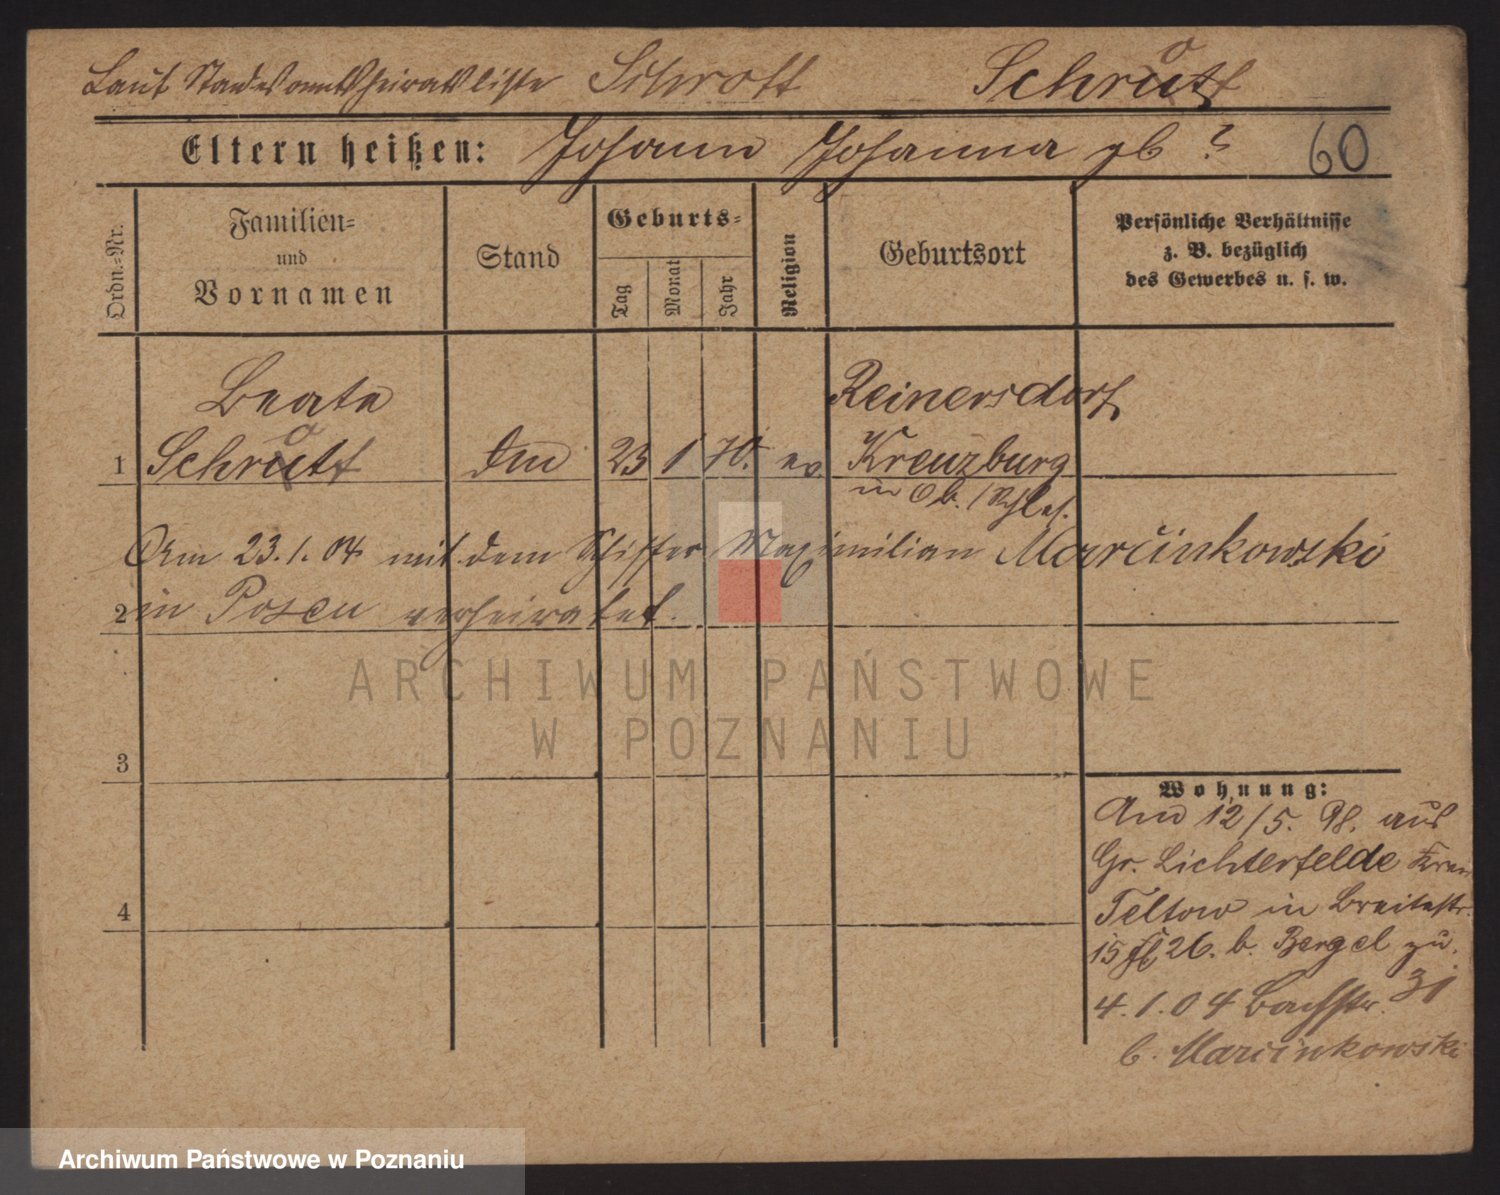 Laut Standesamtsheiratsliste Schrott Schrutt
o
Eltern heißen: Johann Johanna gb ?
60
Ordn.-Nr.
Familien-
und
Vornamen
Stand
Geburts-
Tag
Monat
Jahr
Religion
Geburtsort
Persönliche Verhältnisse
z. B. bezüglich
des Gewerbes u. s. w.
Beate
Reinersdorf
o
1 Schrutt 23 1 70. ev. Kreuzburg
in Ob./Schles.
Am 23.1.04 mit dem Schiffer Maximilian Marcinkowski
2 in Posen verheiratet.
ARCHIWUM PAŃSTWOWE
W POZNANIU
3
4
Wohnung:
Am 12/5. 98. aus
Gr. Lichterfelde
Teltow in Breitestr.
15 26. b. Bergel zu.
4.1.04 Bachstr. 31
b. Marcinkowski
Archiwum Państwowe w Poznaniu